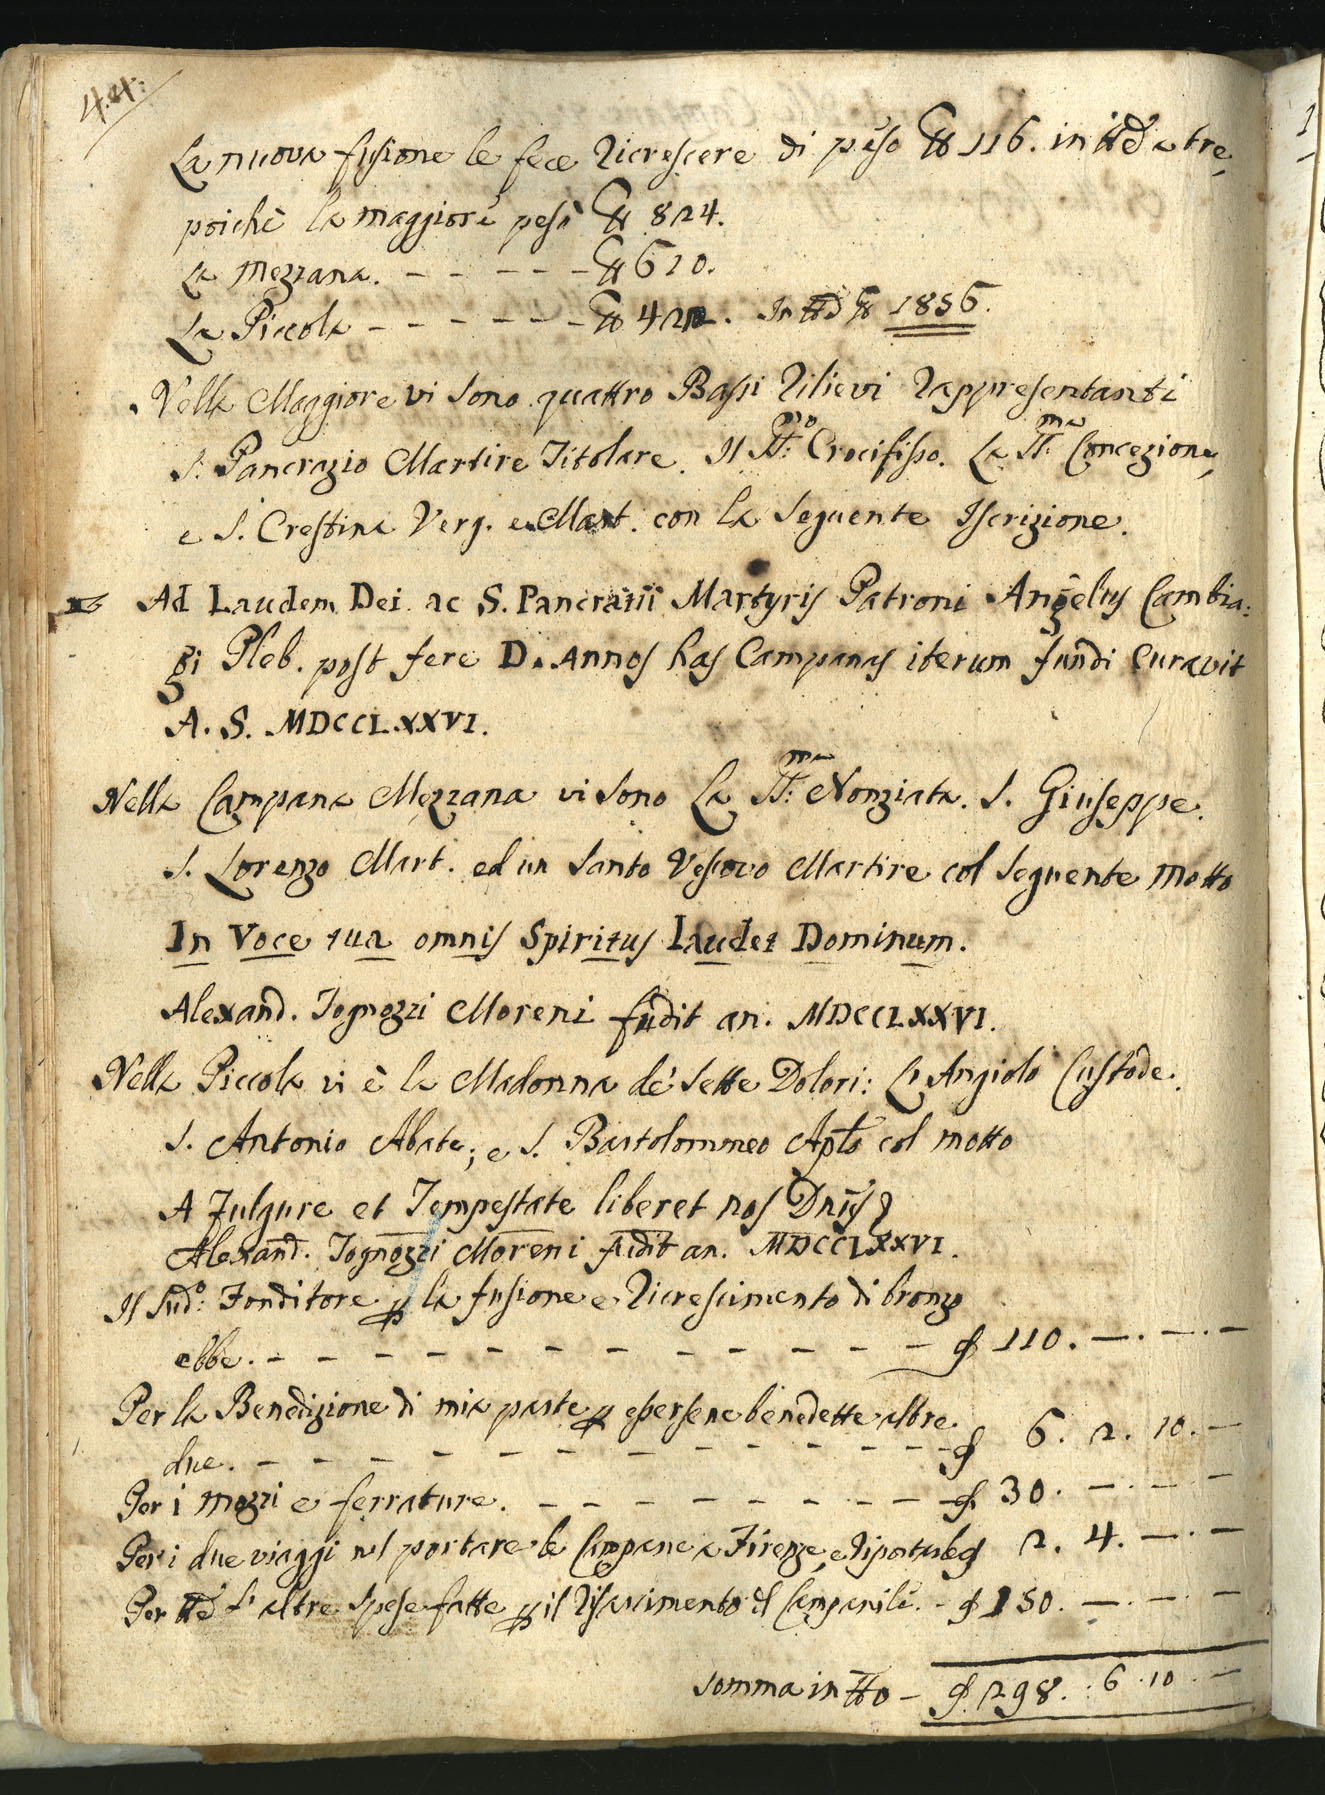 44:
La nuova fusione le fece ricrescere di peso ℔ 116. in tt.ª e tre,
poiche la maggiore pesò ℔ 824.
La Mezzana. - - - - - ℔ 610.
La Piccola - - - - - - ℔ 422. In tt.º ℔ 1856.
Nella Maggiore vi sono quattro Bassi rilievi rappresentanti
S. Pancrazio Martire Titolare. Il SS:mo Crocifisso. La SS:ma Concezione,
e S. Crestina Verg. e Mart. con la seguente Iscrizione.
Ad Laudem Dei ac S. Pancratii Martyris Patroni Angelus Cambia:
gi Pleb. post fere D. Annos has Campanas iterum fundi curavit
A. S. MDCCLXXVI.
Nella Campana Mezzana vi sono La SS:ma Nonziata. S. Giuseppe.
S. Lorenzo Mart. ed un Santo Vescovo Martire col seguente motto
In Voce tua omnis Spiritus Laudet Dominum.
Alexand. Tognozzi Moreni fudit an. MDCCLXXVI.
Nella Piccola vi è la Madonna de' Sette Dolori: L'Angiolo Custode.
S. Antonio Abate; e S. Bartolommeo Aplo col motto
A Fulgure et Tempestate liberet nos Dnus
Alexand. Tognozzi Moreni fudit an. MDCCLXXVI.
Il sud:º Fonditore p la fusione e ricrescimento di bronzo
ebbe. - - - - - - - - - - - - ₰ 110. —.—.—
Per la Benedizione di mia parte p essersene benedette altre
due. - - - - - - - - - - - - ₰ 6. 2. 10. —
Per i mozzi e ferrature. - - - - - - - - ₰ 30. —.—
Per i due viaggi nel portare le Campane a Firenze, e riportarle ₰ 2. 4. —.—
Per tt.e l'altre spese fatte p il risarcimento del Campanile. - ₰ 150. —.—.—
Somma in tto - ₰ 298. 6. 10. —